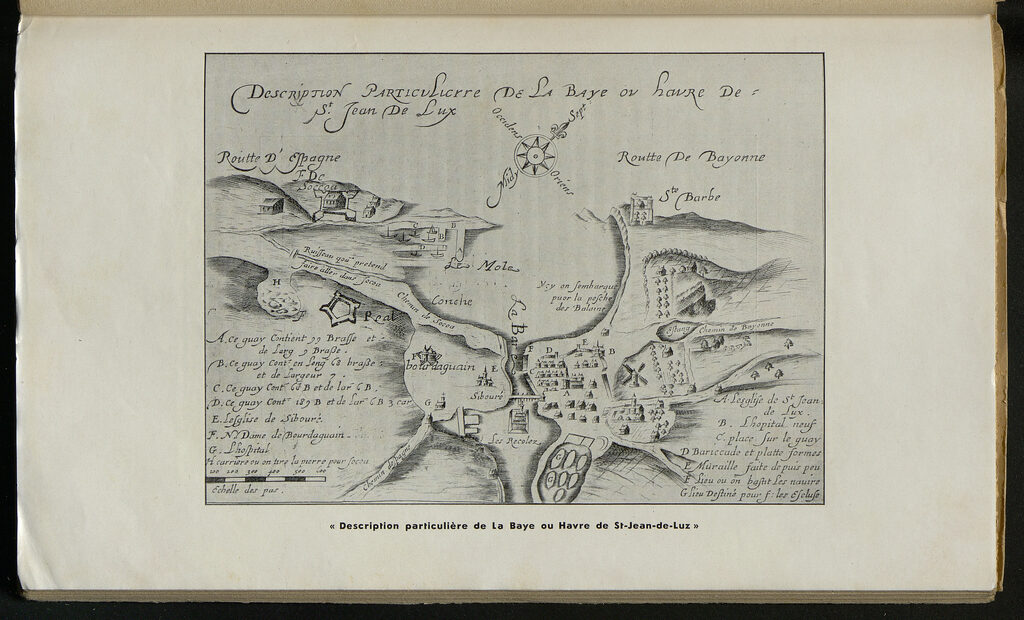 Description Particulierre De La Baye ou havre De
St. Jean De Lux
Occidens
Sept
Midy
Oriens
Routte D'Espagne
Routte De Bayonne
F. De
Soccoa
Ste Barbe
C
B
B
D
A
Le Mole
Ruisseau qon pretend
faire aller dans Socoa
Conche
Chemin de Socoa
La Bare
Yzy on sembarque
puor la pesche
des Balaine
H
Real
Estang
Chemin de Bayonne
F
bourdaguain
E
Sibouré
G
D
E
B
A
Les Recolez
A. Ce quay Contient 99 Brasse et
de Larg 9 Braße.
B. Ce quay Cont. en Leng 68 braße
et de Largeur 7.
C. Ce quay Cont 60 B et de lar 6 B.
D. Ce quay Cont 189 B et de Lar 6 B 3 car
E. Lesglise de Sibouré.
F. N. Dame de Bourdaguain.
G. Lhospital
H carriere ou on tire la pierre pour socoa
100 200 300 400 500 600
Echelle des pas.
A Lesglise de St Jean
de Lux.
B. Lhopital neuf
C. place sur le quay
D Bariccade et platte formes
E Muraille faite depuis peu
F Lieu ou on bastit Les navire
G lieu Destiné pour f: les Escluse
« Description particulière de La Baye ou Havre de St-Jean-de-Luz »